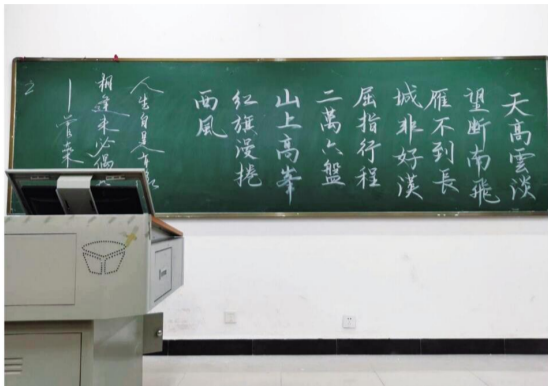 天高雲淡
望断南飛
雁不到長
城非好漢
屈指行程
二萬六盤
山上高峯
紅旗漫捲
西風
人生自是
相逢未必偶